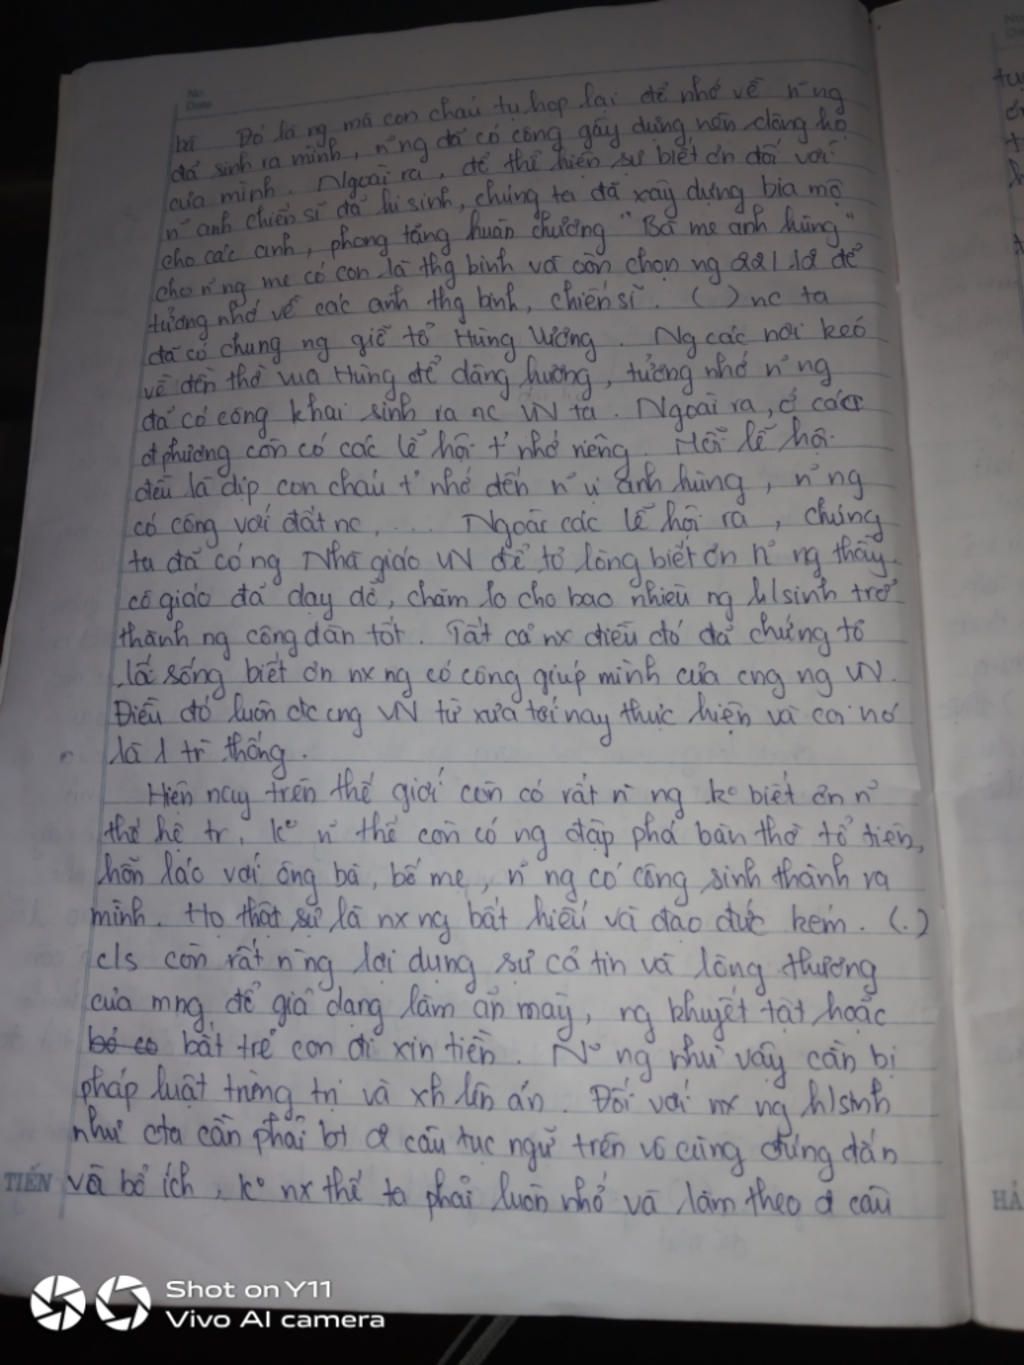 No.
Date
Đó là ng mà con cháu tụ họp lại để nhớ về n~ ng
đã sinh ra mình, n~ ng đã có công gây dựng nên dòng họ
của mình. Ngoài ra, để thể hiện sự biết ơn đối với
n~ anh chiến sĩ đã hi sinh, chúng ta đã xây dựng bia mộ
cho các anh, phong tặng huân chương "Bà mẹ anh hùng"
cho n~ ng mẹ có con là thg binh và còn chọn ng 22/12 để
tưởng nhớ về các anh thg binh, chiến sĩ. ( ) nc ta
đã có chung ng giỗ tổ Hùng Vương. Ng các nơi kéo
về đền thờ vua Hùng để dâng hương, tưởng nhớ n~ ng
đã có công khai sinh ra nc VN ta. Ngoài ra, ở các
đ phương còn có các lễ hội t' nhớ riêng. Mỗi lễ hội
đều là dịp con cháu t' nhớ đến n~ vị anh hùng, n~ ng
có công với đất nc, ... Ngoài các lễ hội ra, chúng
ta đã có ng Nhà giáo VN để tỏ lòng biết ơn n~ ng thầy
cô giáo đã dạy dỗ, chăm lo cho bao nhiêu ng h/sinh trở
thành ng công dân tốt. Tất cả nx điều đó đã chứng tỏ
lối sống biết ơn nx ng có công giúp mình của cng ng VN.
Điều đó luôn đc cng VN từ xưa tới nay thực hiện và coi nó
là 1 tr` thống.
Hiện nay trên thế giới còn có rất n` ng ko biết ơn n~
thế hệ tr. Ko n~ thế còn có ng đập phá bàn thờ tổ tiên,
hỗn láo với ông bà, bố mẹ, n~ ng có công sinh thành ra
mình. Họ thật sự là nx ng bất hiếu và đạo đức kém. (.)
c/s còn rất n` ng lợi dụng sự cả tin và lòng thương
của mng để giả dạng làm ăn mày, ng khuyết tật hoặc
bắt trẻ con đi xin tiền. N~ ng như vậy cần bị
pháp luật trừng trị và xh lên án. Đối với nx ng h/sinh
như cta cần phải bt đ câu tục ngữ trên vô cùng đúng đắn
TIẾN và bổ ích, ko nx thế ta phải luôn nhớ và làm theo đ câu
HẢ
Shot on Y11
Vivo AI camera